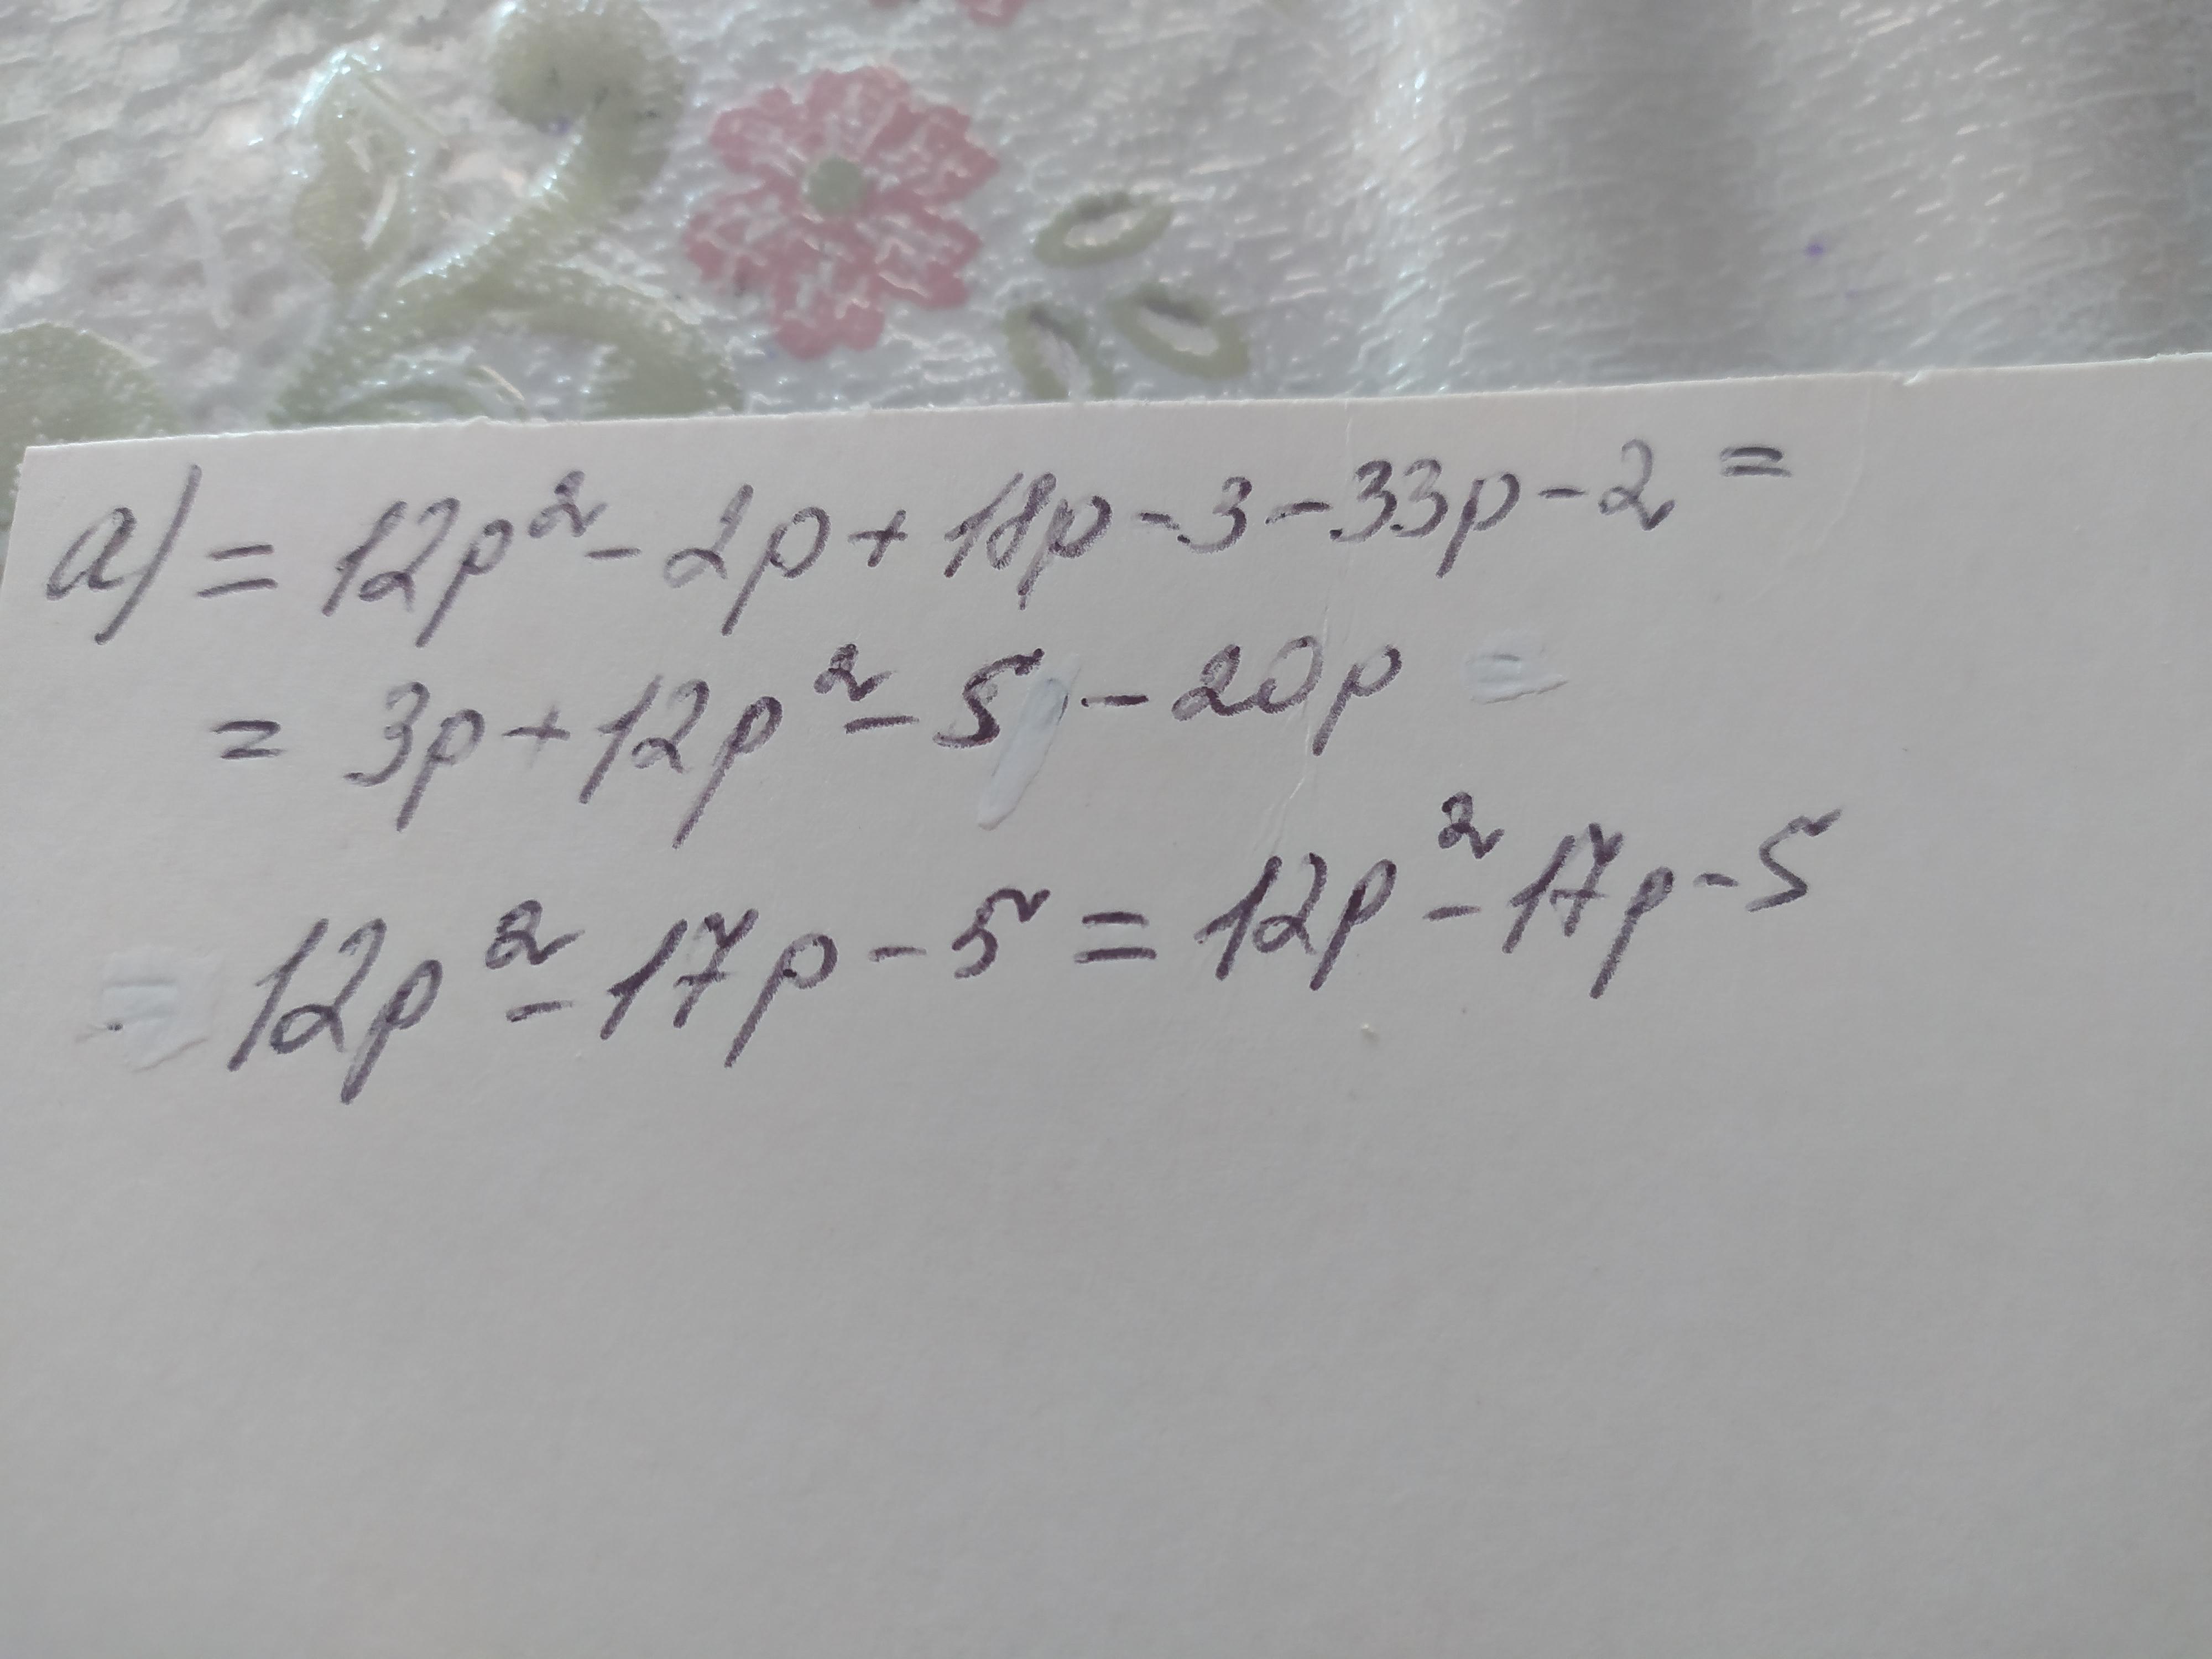 а) = 12p² - 2p + 18p - 3 - 33p - 2 =
= 3p + 12p² - 5 - 20p =
= 12p² - 17p - 5 = 12p² - 17p - 5